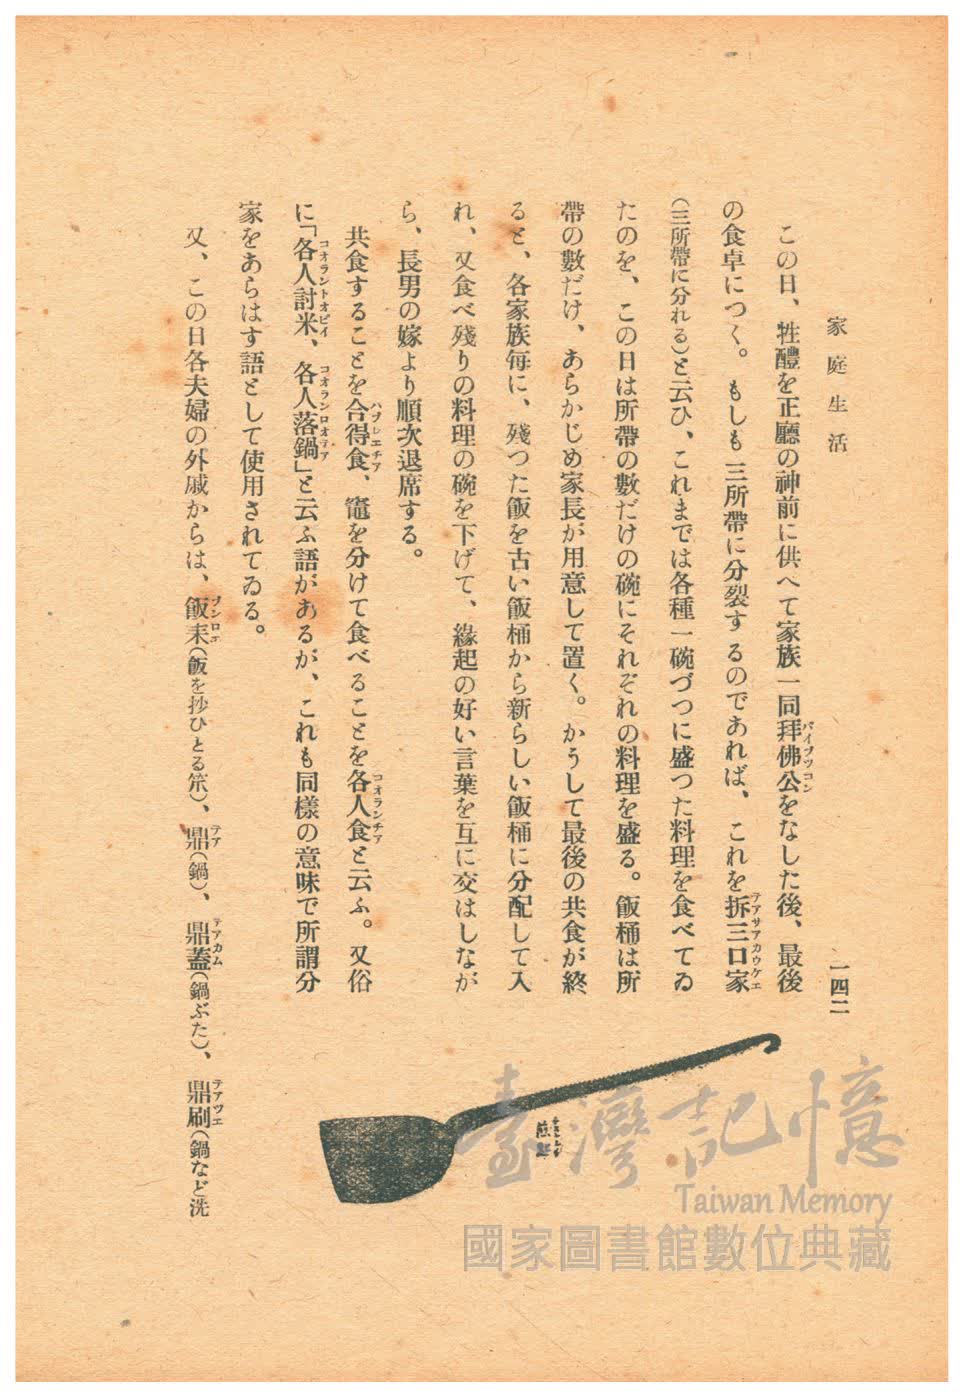 家庭生活
一四二
この日、牲醴を正廳の神前に供へて家族一同拜佛公をなした後、最後
の食卓につく。もしも三所帶に分裂するのであれば、これを拆三口家
(三所帶に分れる)と云ひ、これまでは各種一碗づつに盛つた料理を食べてゐ
たのを、この日は所帶の數だけの碗にそれぞれの料理を盛る。飯桶は所
帶の數だけ、あらかじめ家長が用意して置く。かうして最後の共食が終
ると、各家族每に、殘つた飯を古い飯桶から新らしい飯桶に分配して入
れ、又食べ殘りの料理の碗を下げて、緣起の好い言葉を互に交はしなが
ら、長男の嫁より順次退席する。
共食することを合得食、竈を分けて食べることを各人食と云ふ。又俗
に「各人討米、各人落鍋」と云ふ語があるが、これも同樣の意味で所謂分
家をあらはす語として使用されてゐる。
又、この日各夫婦の外戚からは、飯耒(飯を抄ひとる笊)、鼎(鍋)、鼎蓋(鍋ぶた)、鼎刷(鍋など洗
臺灣記憶
Taiwan Memory
國家圖書館數位典藏